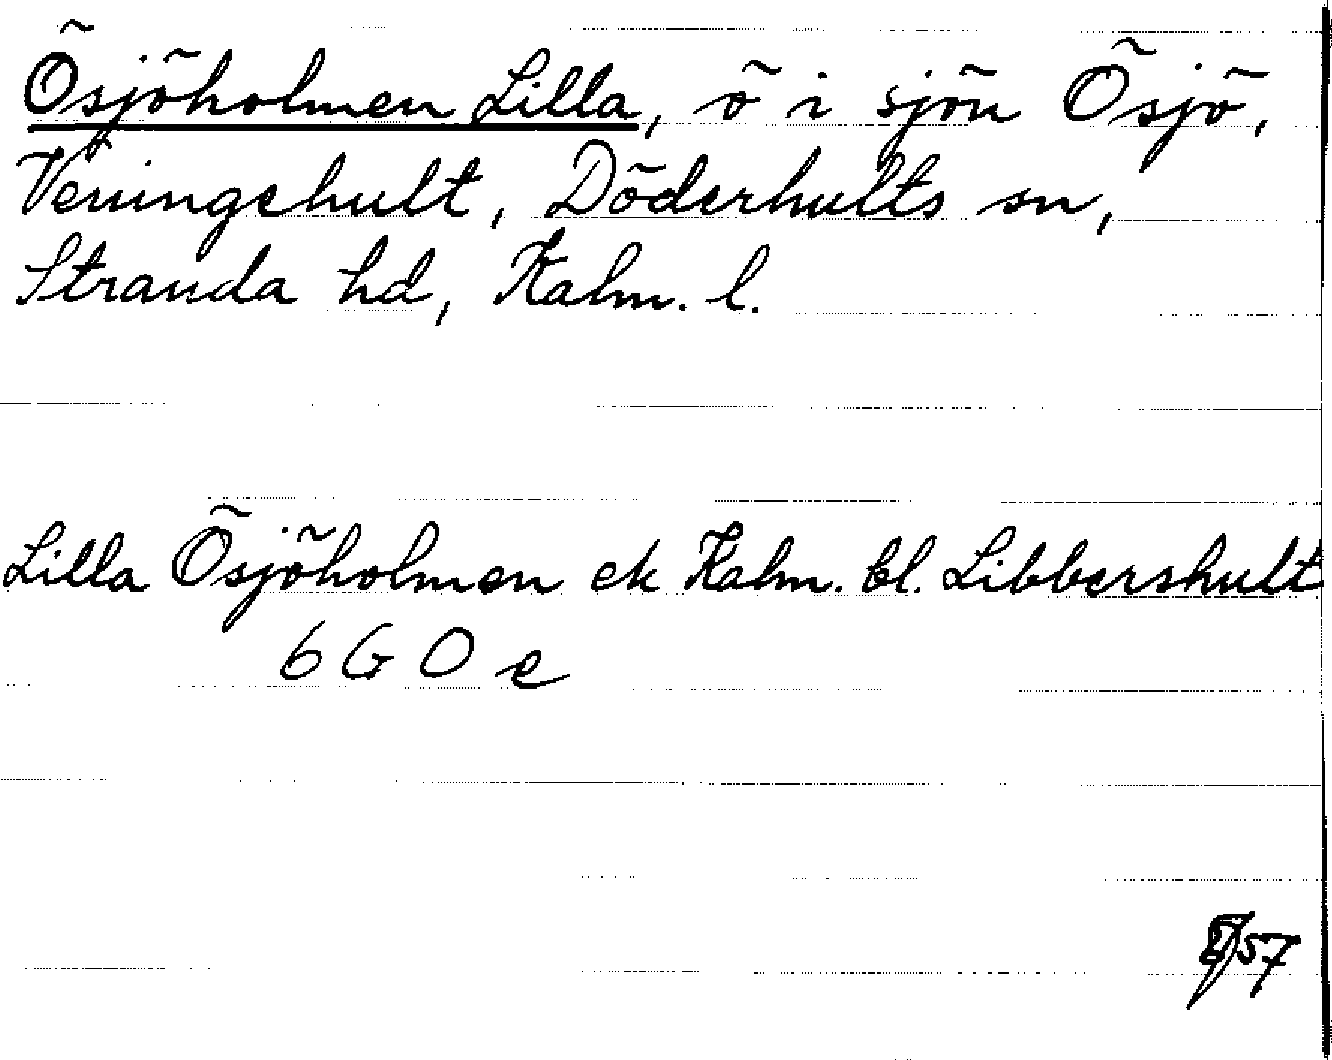 Ösjöholmen Lilla, ö i sjön Ösjö,
Veningehult, Döderhults sn,
Stranda hd, Kalm. l.
Lilla Ösjöholmen ek Kalm. bl. Libbershult
6 G O e
57